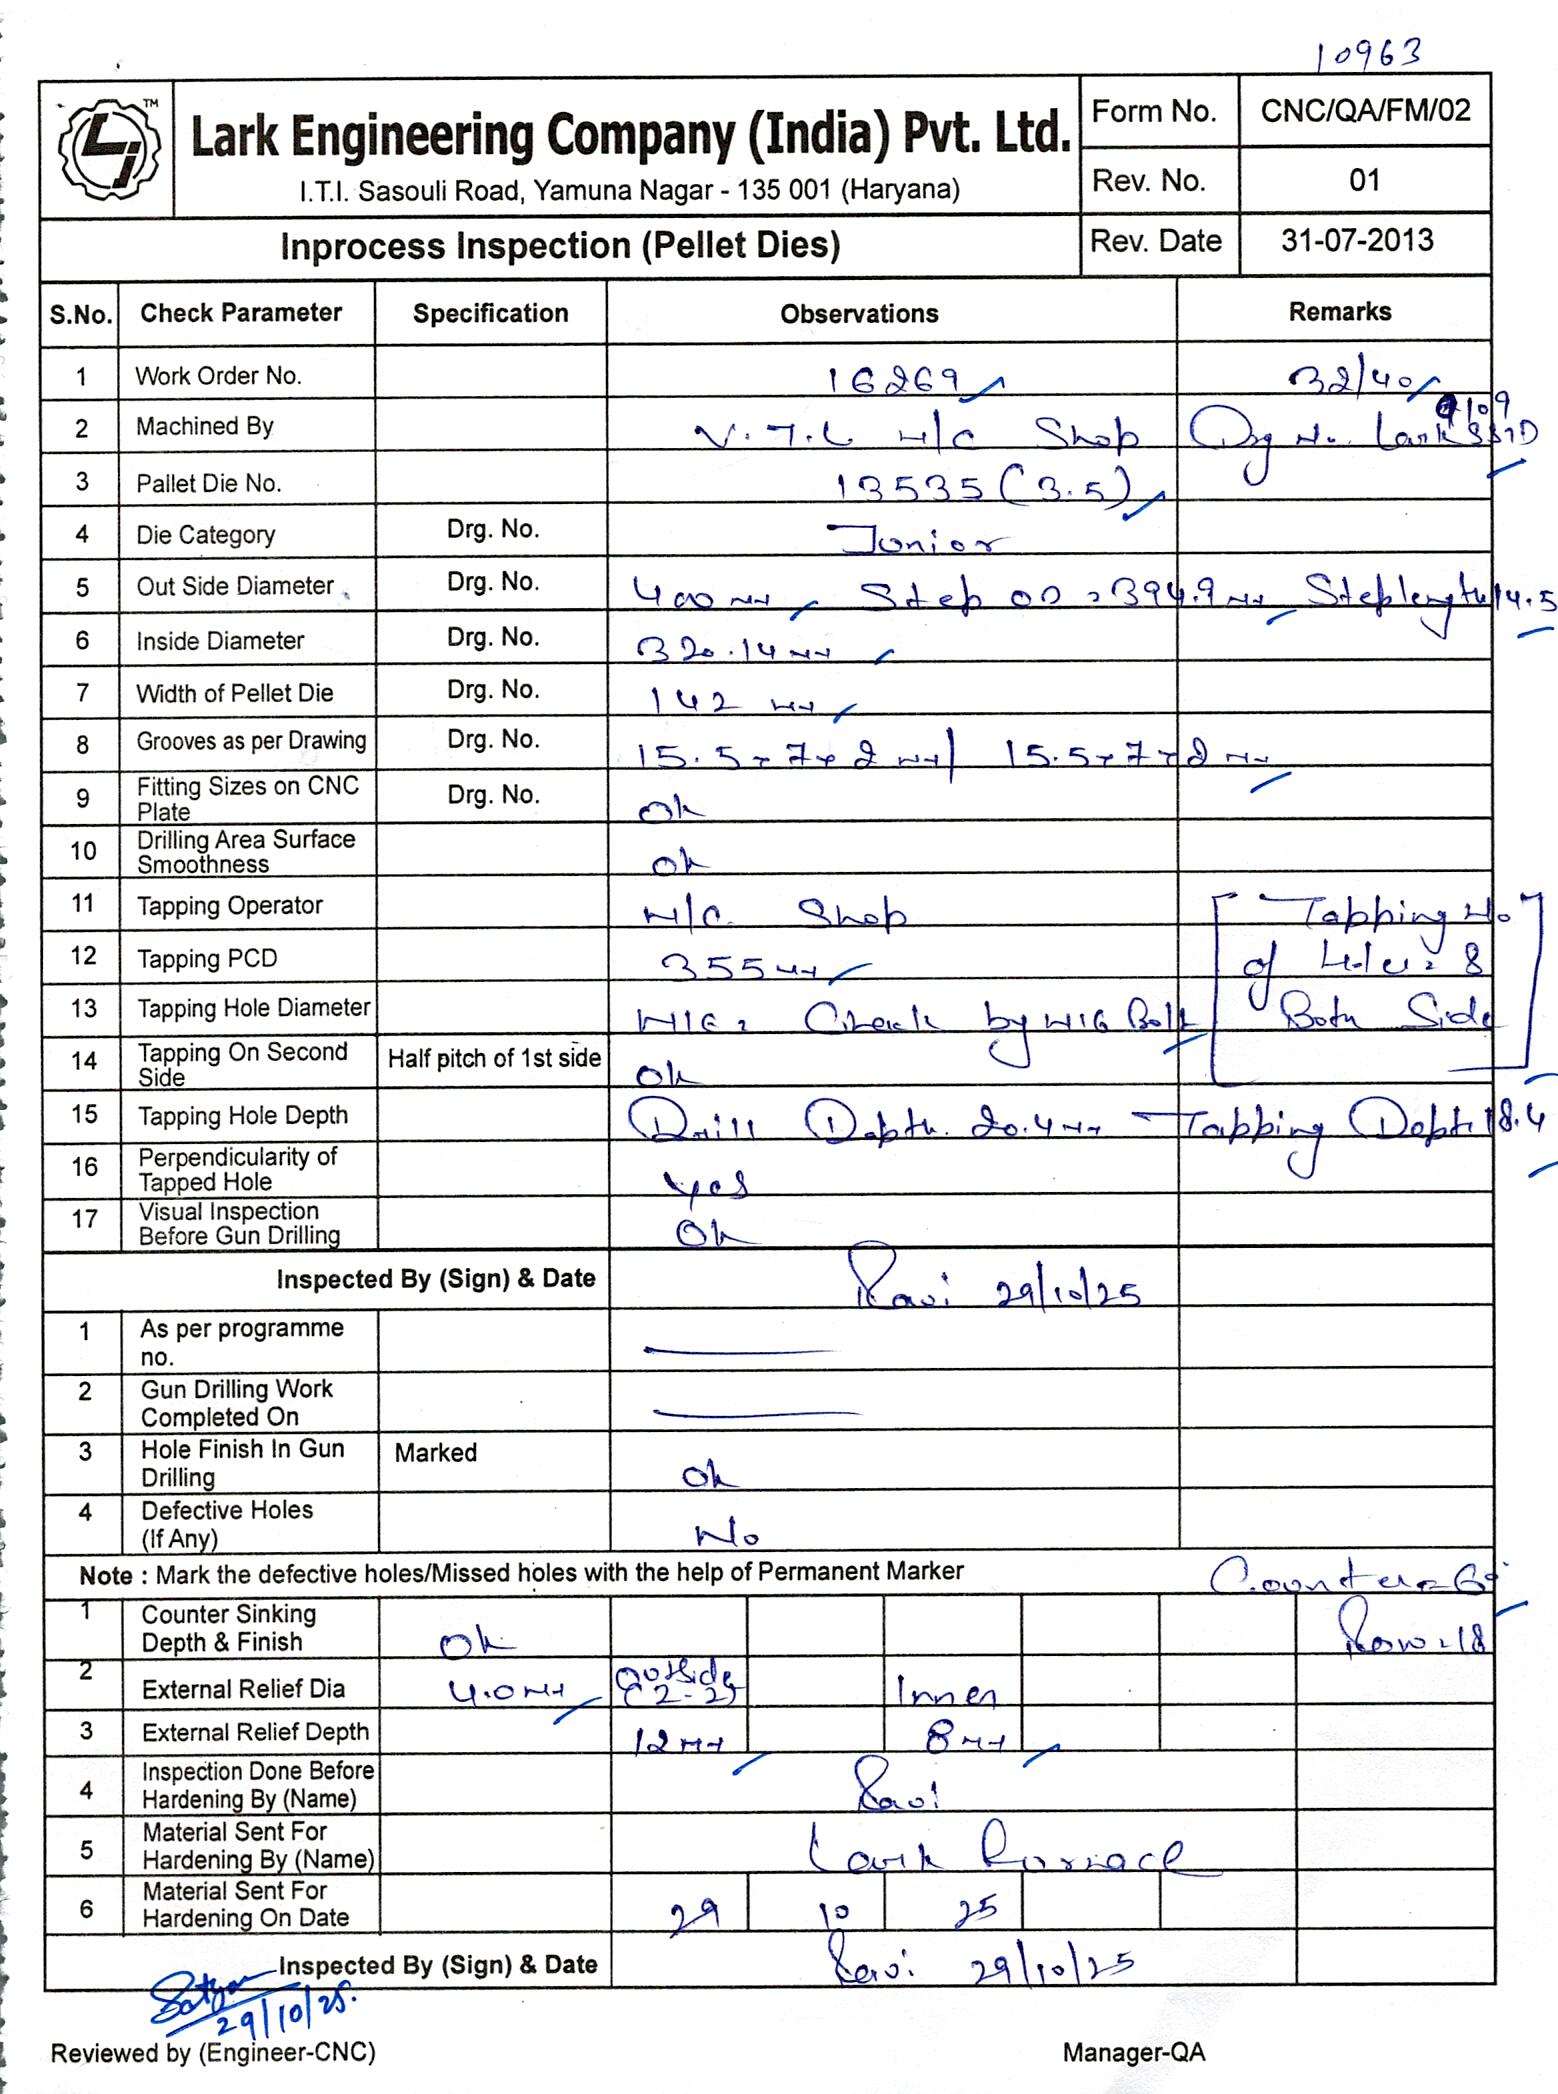 10963
TM
Lark Engineering Company (India) Pvt. Ltd.
I.T.I. Sasouli Road, Yamuna Nagar - 135 001 (Haryana)
Form No. CNC/QA/FM/02
Rev. No. 01
Inprocess Inspection (Pellet Dies) Rev. Date 31-07-2013
S.No. Check Parameter Specification Observations Remarks
1 Work Order No. 16269 32/40
2 Machined By V.T.L M/C Shop Drg No. Lark
3 Pallet Die No. 13535 (3.5)
4 Die Category Drg. No. Junior
5 Out Side Diameter Drg. No. 400 mm Step OD = 394.9 mm Step length 14.5
6 Inside Diameter Drg. No. 320.14 mm
7 Width of Pellet Die Drg. No. 142 mm
8 Grooves as per Drawing Drg. No. 15.5 x 7 x 2 mm / 15.5 x 7 x 2 mm
9 Fitting Sizes on CNC Plate Drg. No. Ok
10 Drilling Area Surface Smoothness Ok
11 Tapping Operator M/C Shop Tapping No
12 Tapping PCD 355 mm of Hole = 8
13 Tapping Hole Diameter M16 = Check by M16 Bolt Both Side
14 Tapping On Second Side Half pitch of 1st side Ok
15 Tapping Hole Depth Drill Depth. 20.4 mm Tapping Depth 18.4
16 Perpendicularity of Tapped Hole Yes
17 Visual Inspection Before Gun Drilling Ok
Inspected By (Sign) & Date Ravi 29/10/25
1 As per programme no.
2 Gun Drilling Work Completed On
3 Hole Finish In Gun Drilling Marked Ok
4 Defective Holes (If Any) No
Note : Mark the defective holes/Missed holes with the help of Permanent Marker Counter = 60°
1 Counter Sinking Depth & Finish Ok Row = 18
2 External Relief Dia 4.0 mm Outside (2-2) Inner
3 External Relief Depth 12 mm 8 mm
4 Inspection Done Before Hardening By (Name) Ravi
5 Material Sent For Hardening By (Name) Lark Furnace
6 Material Sent For Hardening On Date 29 10 25
Inspected By (Sign) & Date Ravi 29/10/25
29/10/25.
Reviewed by (Engineer-CNC) Manager-QA